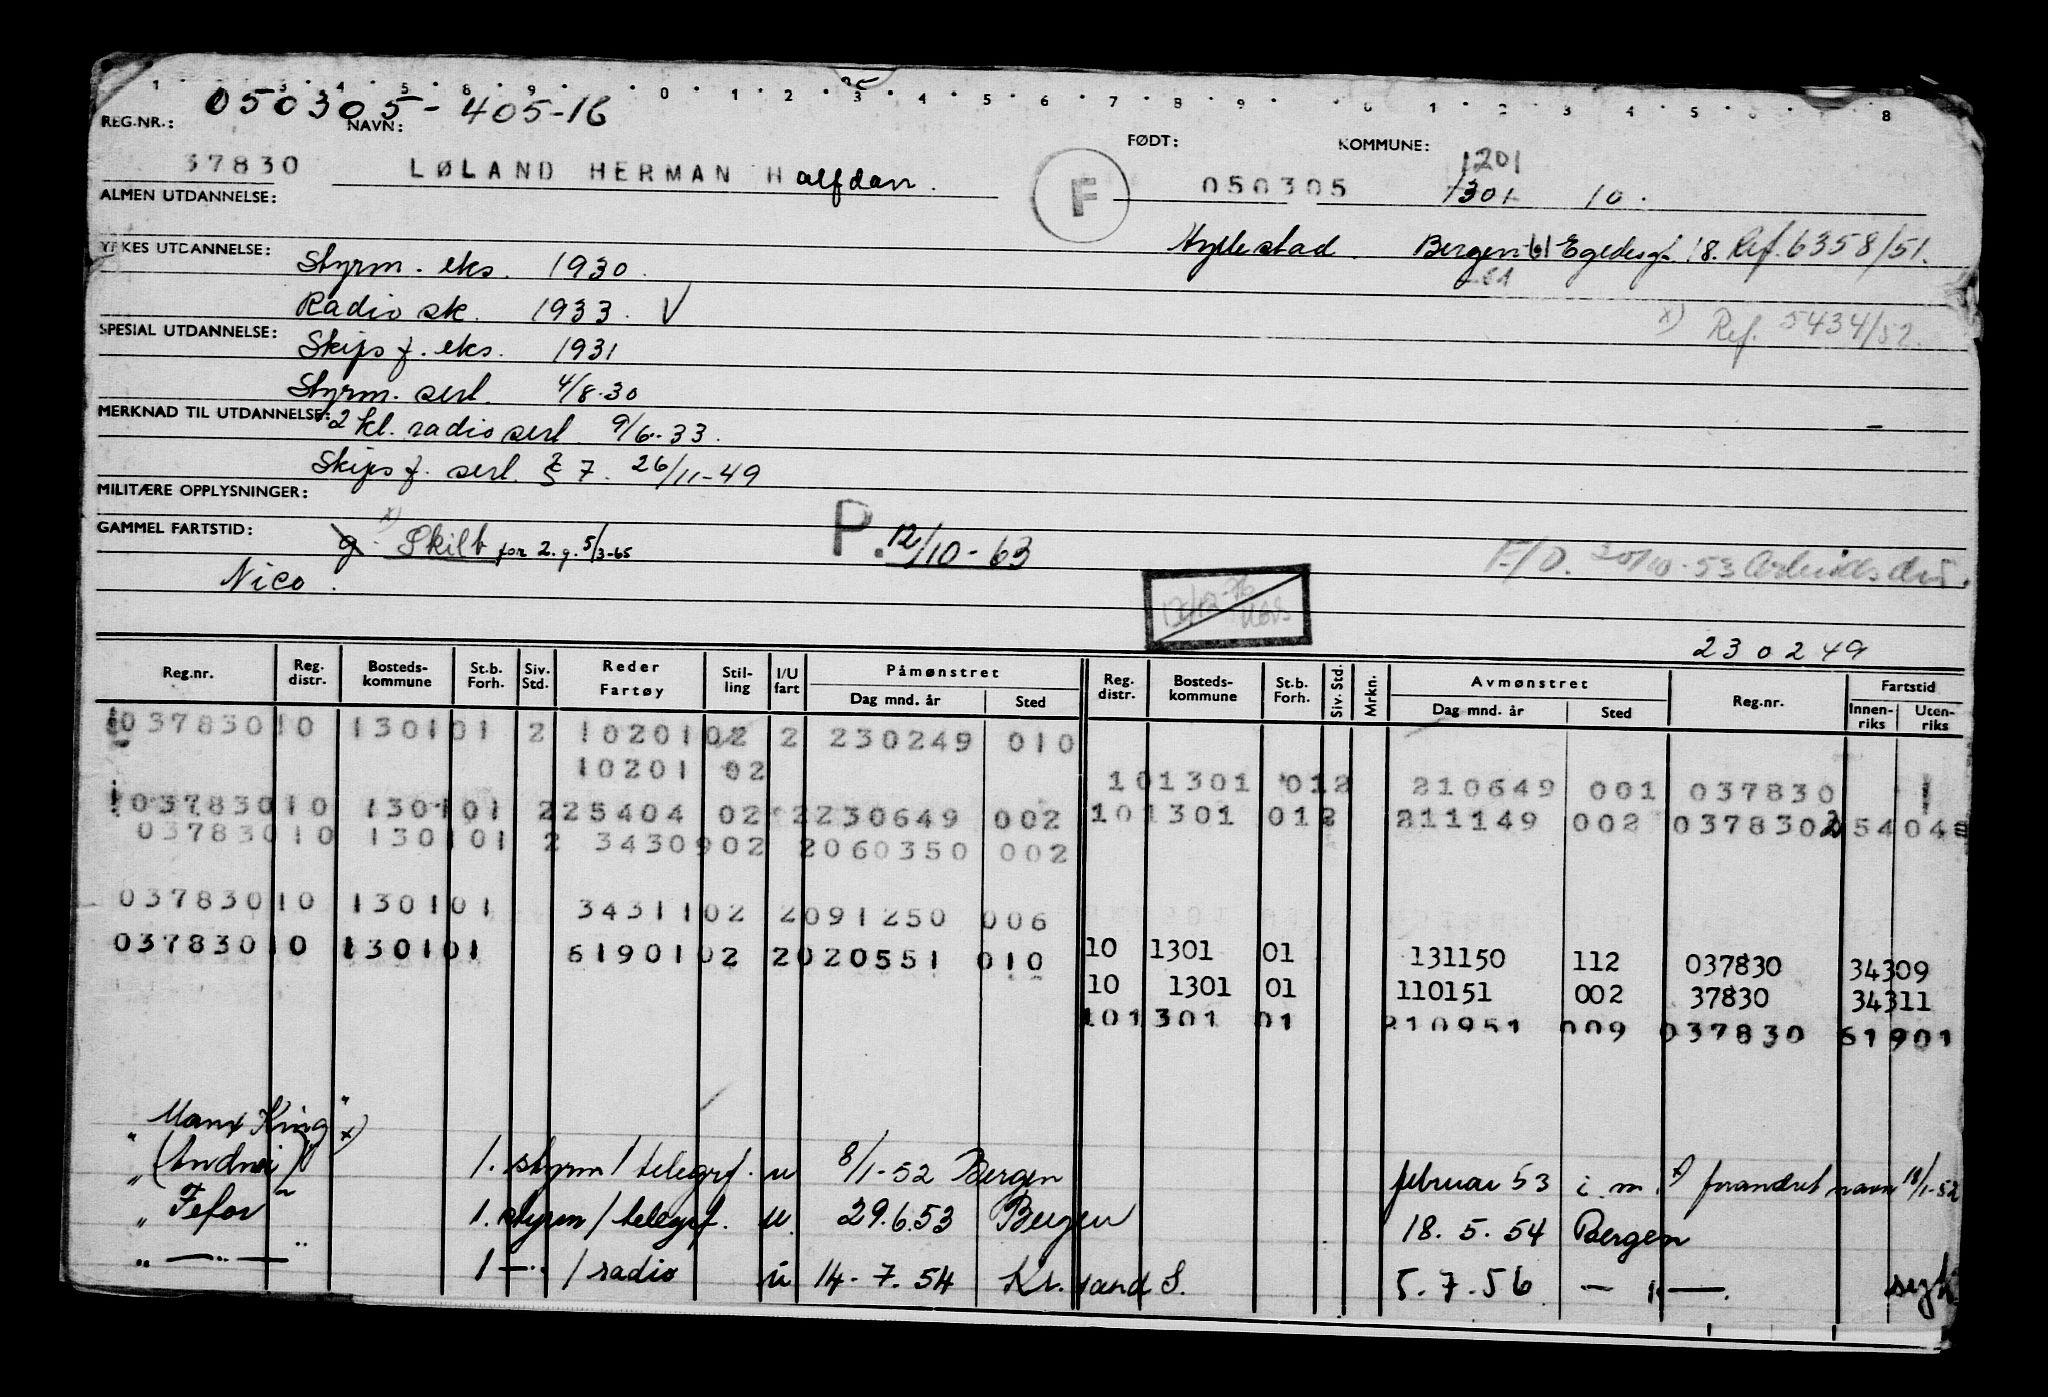 1 3 4 5 8 9 0 1 2 3 4 5 6 7 8 9 0 1 2 3 4 5 8
050305-405-16
REG.NR.: NAVN: FØDT: KOMMUNE:
1201
37830 LØLAND HERMAN Halfdan. F 050305 1301 10.
ALMEN UTDANNELSE:
Hyllestad. Bergen 18. Ref. 6358/51.
YRKES UTDANNELSE: Styrm. eks. 1930.
Radio sk. 1933. V
x) Ref. 5434/52.
SPESIAL UTDANNELSE: Skips f. eks. 1931
Styrm. serl. 4/8.30
MERKNAD TIL UTDANNELSE: 2 kl. radio serl. 9/6-33.
Skips f. serl. 7. 26/11-49
MILITÆRE OPPLYSNINGER:
GAMMEL FARTSTID: g. x) Skilt for 2. g. 5/3-65 P. 12/10-63
F/O. 53
Nico.
230249
Reg.nr. Reg. distr. Bosteds-kommune St.b. Forh. Siv. Std. Reder Fartøy Stil-ling I/U fart Påmønstret Dag mnd. år Sted Reg. distr. Bosteds-kommune St.b. Forh. Siv. Std. Mrkn. Avmønstret Dag mnd. år Sted Reg.nr. Fartstid Innen-riks Uten-riks
037830 10 1301 01 2 10201 02 2 230249 010
10201 02 10 1301 012 210649 001 037830
037830 10 1301 01 2 25404 02 2 230649 002 10 1301 012 211149 002 037830 25404
037830 10 1301 01 2 34309 02 2 060350 002
037830 10 1301 01 34311 02 2 091250 006
037830 10 1301 01 61901 02 2 020551 010 10 1301 01 131150 112 037830 34309
10 1301 01 110151 002 37830 34311
10 1301 01 210951 009 037830 61901
"Manx King" x)
"(Andrei)" 1. styrm / telegrf. u 8/1-52 Bergen februar 53 i.m. x) forandret navn 18/1-52
"Fefor" 1. styrm / telegrf. u. 29.6.53 Bergen 18. 5. 54 Bergen
" — " — " 1 — " / radio u 14-7.54 Kr. sand S. 5.7.56 — " — . syk